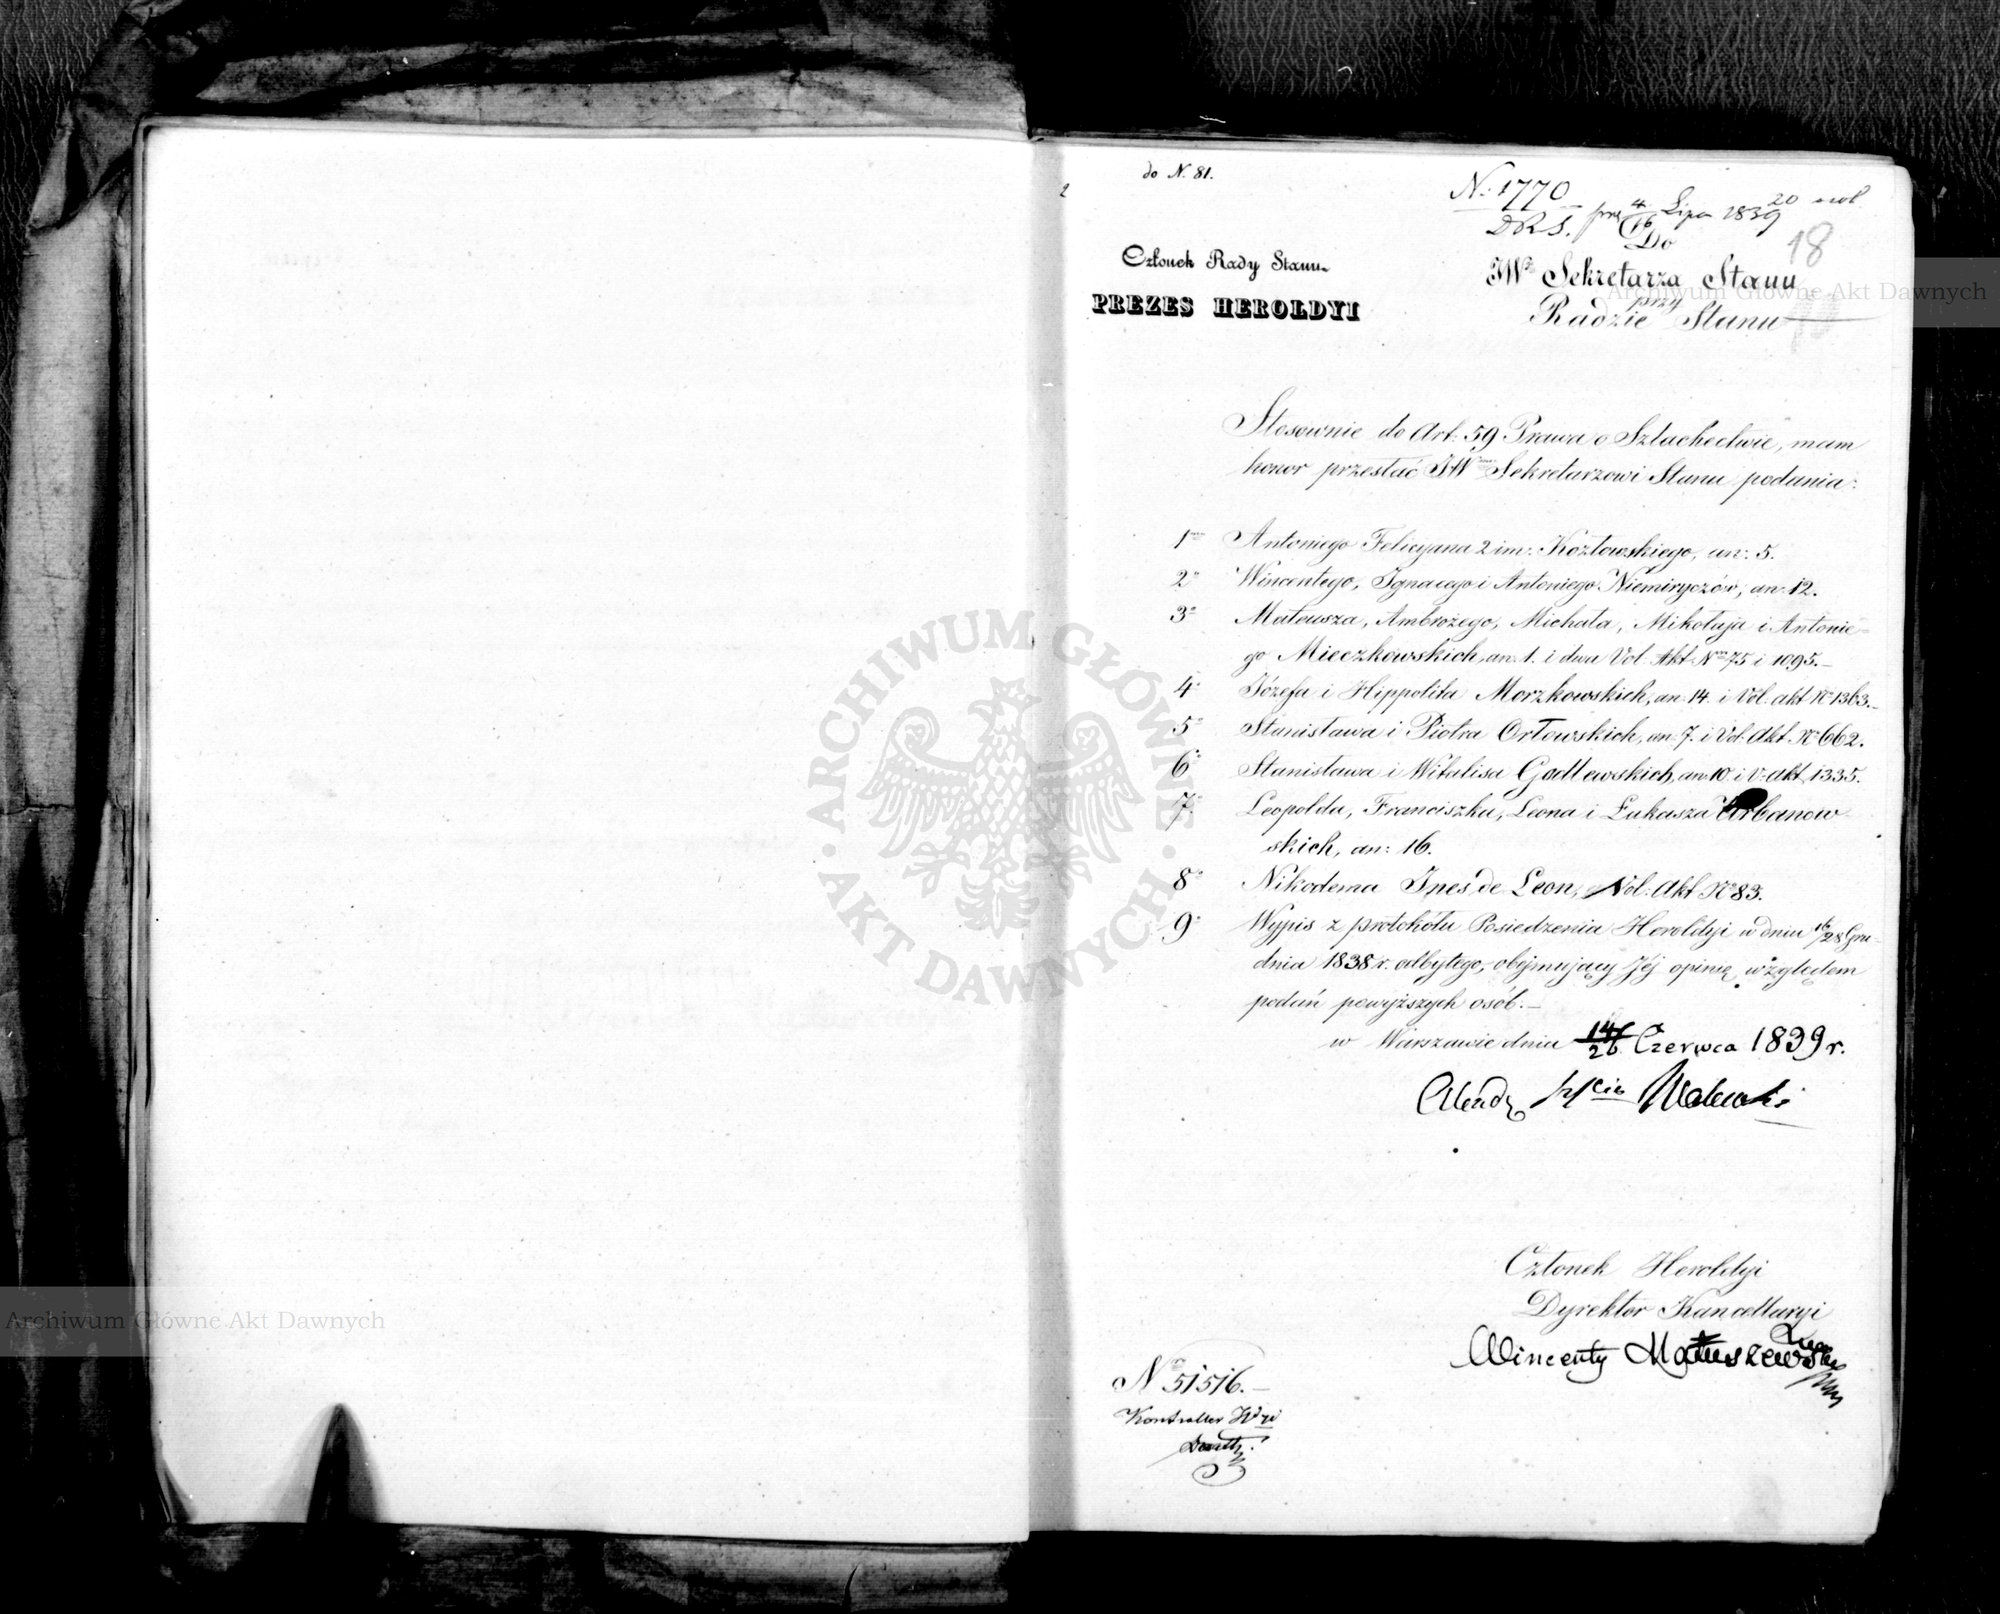 do N. 81.
N. 1770
DRS. 4/16 Lipa 1839
18
Członek Rady Stanu
PREZES HEROLDYI
Do
JWo Sekretarza Stanu
przy
Radzie Stanu
Stosownie do Art. 59 Prawa o Szlachectwie, mam
honor przesłać JWmu Sekretarzowi Stanu podania:
1mo Antoniego Felicyana 2 im: Kozłowskiego, an: 5.
2o Wincentego, Ignacego i Antoniego Niemiryczów, an: 12.
3o Mateusza, Ambrożego, Michała, Mikołaja i Antonie-
go Mieczkowskich, an. 1. i dwa Vol: Akt Nrm 75 i 1095.
4o Józefa i Hippolita Morzkowskich, an. 14. i Vol: akt No 1363.
5o Stanisława i Piotra Orłowskich, an. 7. i Vol: Akt. No 662.
6o Stanisława i Witalisa Godlewskich, an. 10. i V. akt 1335.
7o Leopolda, Franciszka, Leona i Łukasza Urbanow
skich, an: 16.
8o Nikodema Ines de Leon, Vol: Akt No 83.
9o Wypis z protokółu Posiedzenia Heroldyi w dniu 16/28 Gru-
dnia 1838 r. odbytego, obejmujący Jéj opinię względem
podań powyższych osób.
w Warszawie dnia 14/26 Czerwca 1839 r.
Walewski
Członek Heroldyi
Dyrektor Kancellaryi
Wincenty Matuszewski
No 51516.
Kontroller
ARCHIWUM GŁÓWNE
AKT DAWNYCH
Archiwum Główne Akt Dawnych
Archiwum Główne Akt Dawnych